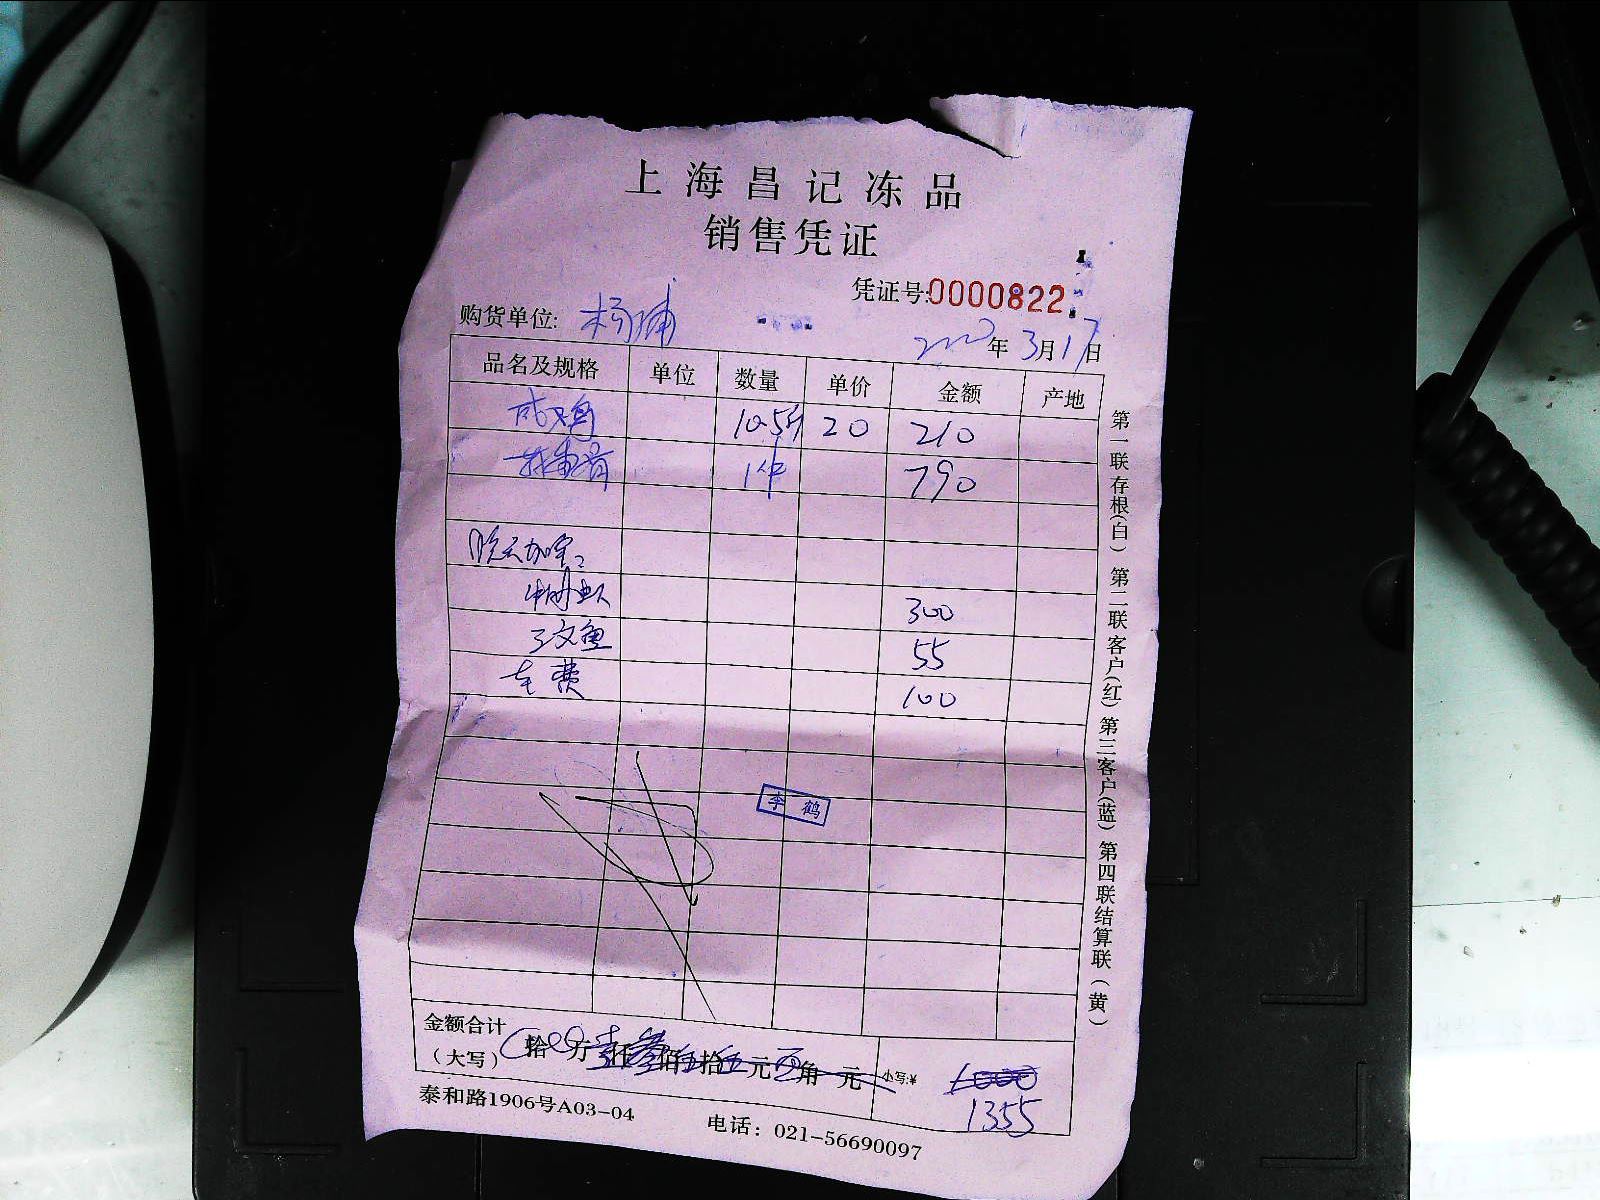 上海昌记冻品
销售凭证
凭证号:0000822
购货单位: 杨浦
年 3月17日
品名及规格 单位 数量 单价 金额 产地
咸鸡 10.5斤 20 210
1件 790
晚云加宝:
300
三文鱼 55
车费 100
李鹤
金额合计
(大写) 拾 万 壹仟叁佰伍拾伍元 角 元 小写:¥ 1000
1355
泰和路1906号A03-04 电话：021-56690097
第一联存根(白) 第二联客户(红) 第三客户(蓝) 第四联结算联(黄)